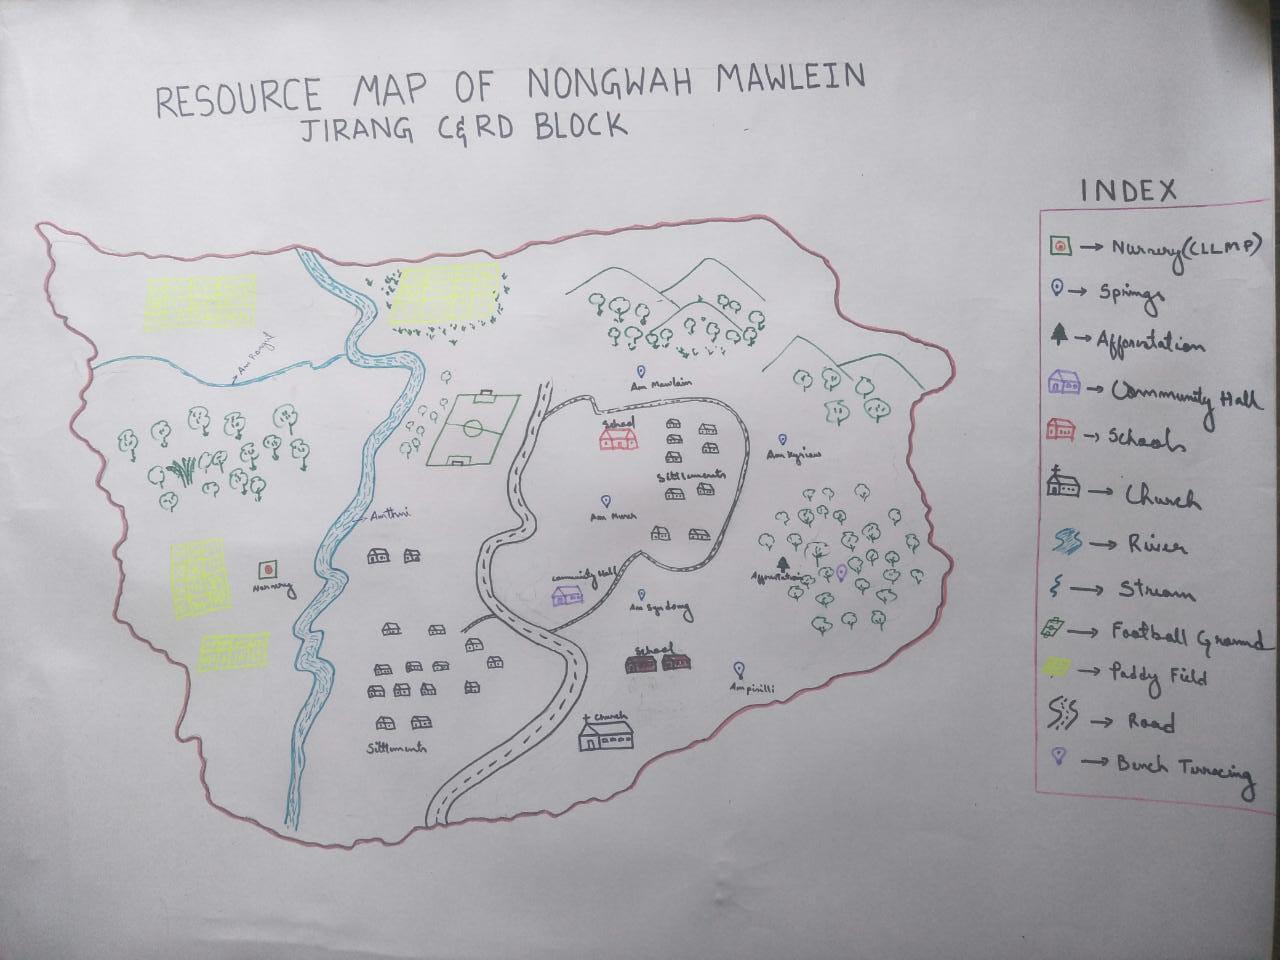 RESOURCE MAP OF NONGWAH MAWLEIN
JIRANG C&RD BLOCK
INDEX
Nursery (CLLMP)
Springs
Afforestation
Community Hall
Schools
Church
River
Stream
Football Ground
Paddy Field
Road
Bench Terracing
Am Rongul
Am Mawlein
School
Am Kyriew
Settlements
Am Murch
Amthri
Afforestation
Nursery
Community Hall
Am Syndong
School
Am pirilli
Church
Settlements